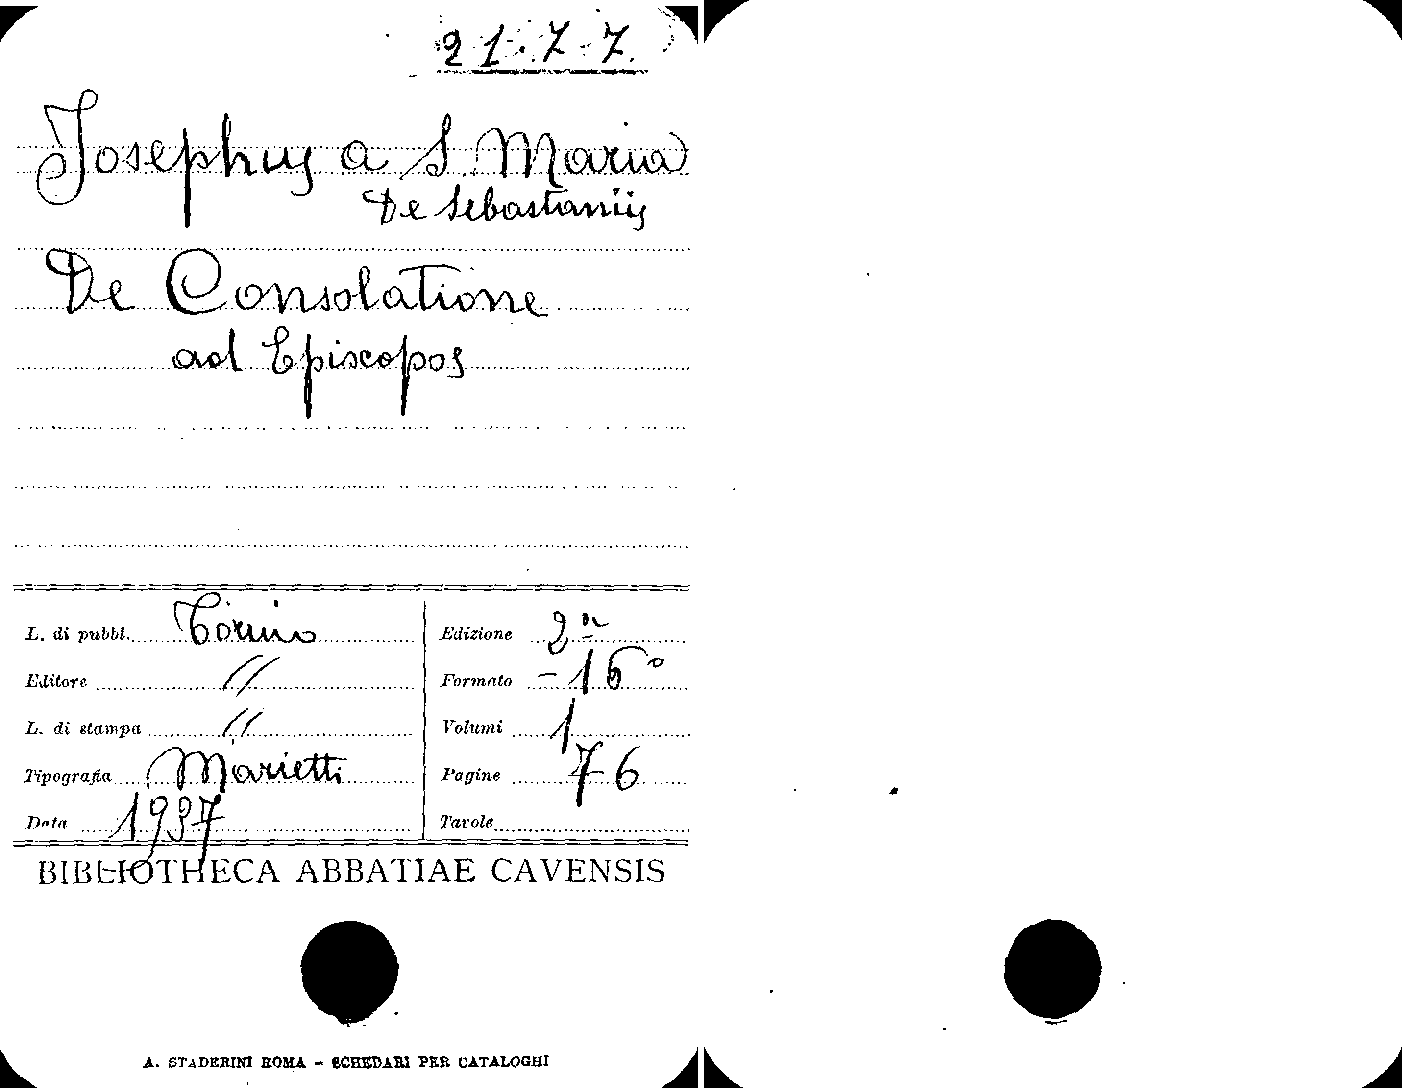 21.7.7.
Josephus a S. Maria
De Sebastaniis
De Consolatione
ad Episcopos
L. di pubbl. Torino
Editore //
L. di stampa //
Tipografia Marietti
Data 1937
Edizione 2ª
Formato - 16°
Volumi 1
Pagine 76
Tavole
BIBLIOTHECA ABBATIAE CAVENSIS
A. STADERINI ROMA - SCHEDARI PER CATALOGHI